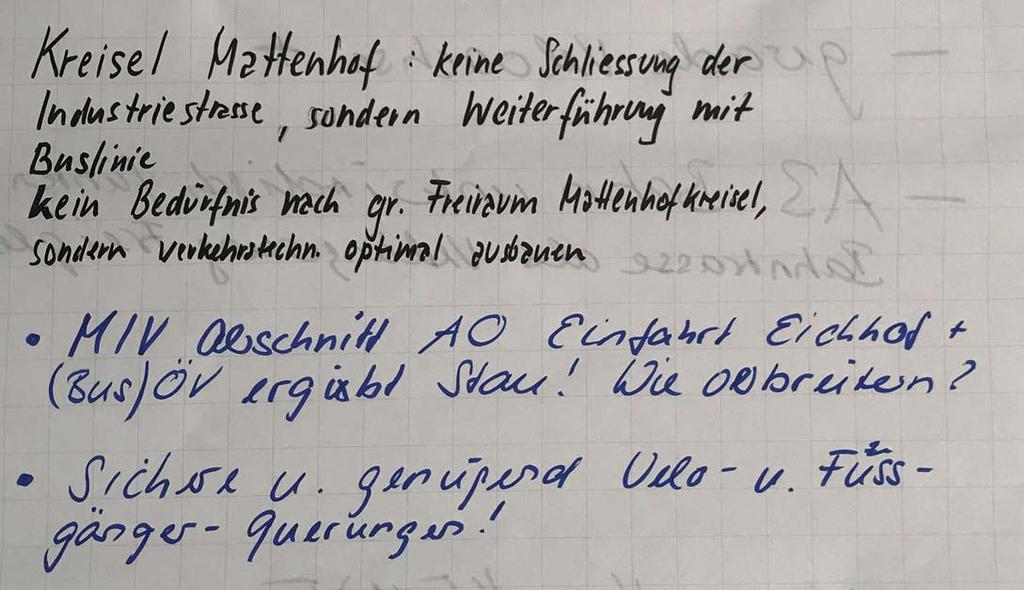 Kreisel Mattenhof : keine Schliessung der
Industriestrasse, sondern Weiterführung mit
Buslinie
kein Bedürfnis nach gr. Freiraum Mattenhofkreisel,
sondern verkehrstechn. optimal ausbauen
• MIV Abschnitt AO Einfahrt Eichhof +
(Bus) ÖV ergibt Stau! Wie
• Sichere u. genügend Velo- u. Fuss-
gänger-Querungen!